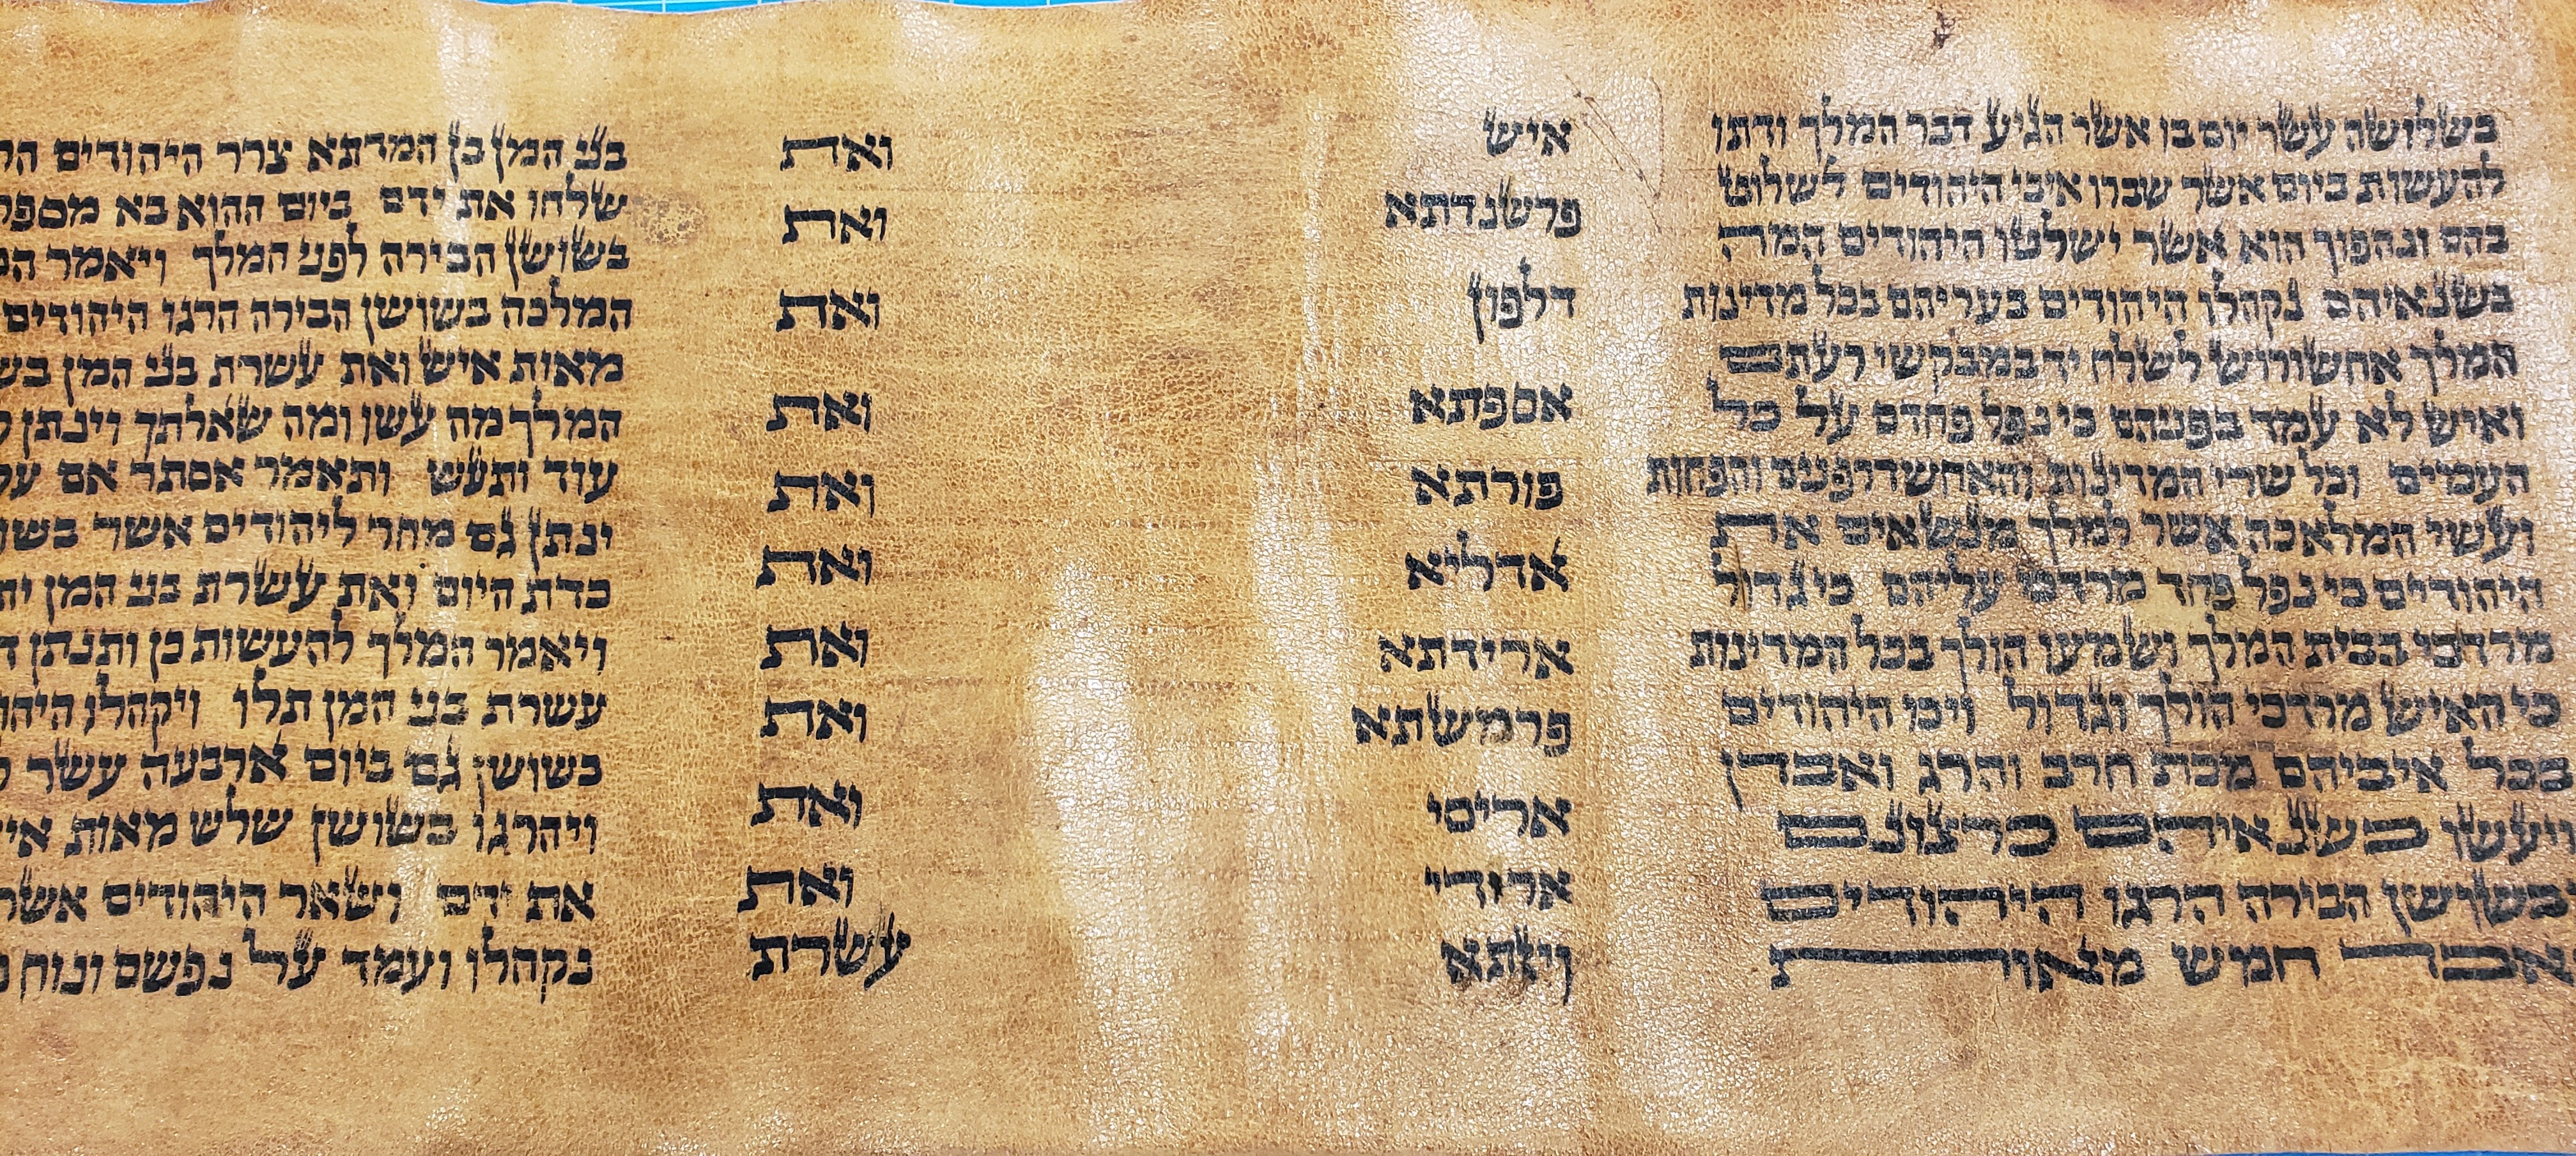 בשלושה עשר יום בו אשר הגיע דבר המלך ודתו
להעשות ביום אשר שברו איבי היהודים לשלוט
בהם ונהפוך הוא אשר ישלטו היהודים המה
בשנאיהם נקהלו היהודים בעריהם בכל מדינות
המלך אחשורוש לשלח יד במבקשי רעתם
ואיש לא עמד בפניהם כי נפל פחדם על כל
העמים וכל שרי המדינות והאחשדרפנים והפחות
ועשי המלאכה אשר למלך מנשאים את
היהודים כי נפל פחד מרדכי עליהם כי גדול
מרדכי בבית המלך ושמעו הולך בכל המדינות
כי האיש מרדכי הולך וגדול ויכו היהודים
בכל איביהם מכת חרב והרג ואבדן
ויעשו בשנאיהם כרצונם
בשושן הבירה הרגו היהודים
ואבד חמש מאות
איש ואת
פרשנדתא ואת
דלפון ואת
אספתא ואת
פורתא ואת
אדליא ואת
ארידתא ואת
פרמשתא ואת
אריסי ואת
ארידי ואת
ויזתא עשרת
בני המן בן המדתא צרר היהודים
שלחו את ידם ביום ההוא בא מספר
בשושן הבירה לפני המלך ויאמר
המלכה בשושן הבירה הרגו היהודים
מאות איש ואת עשרת בני המן
המלך מה עשו ומה שאלתך וינתן
עוד ותעש ותאמר אסתר אם על
ינתן גם מחר ליהודים אשר
כדת היום ואת עשרת בני המן
ויאמר המלך להעשות כן ותנתן
עשרת בני המן תלו ויקהלו
בשושן גם ביום ארבעה עשר
ויהרגו בשושן שלש מאות
את ידם ושאר היהודים אשר
נקהלו ועמד על נפשם ונוח